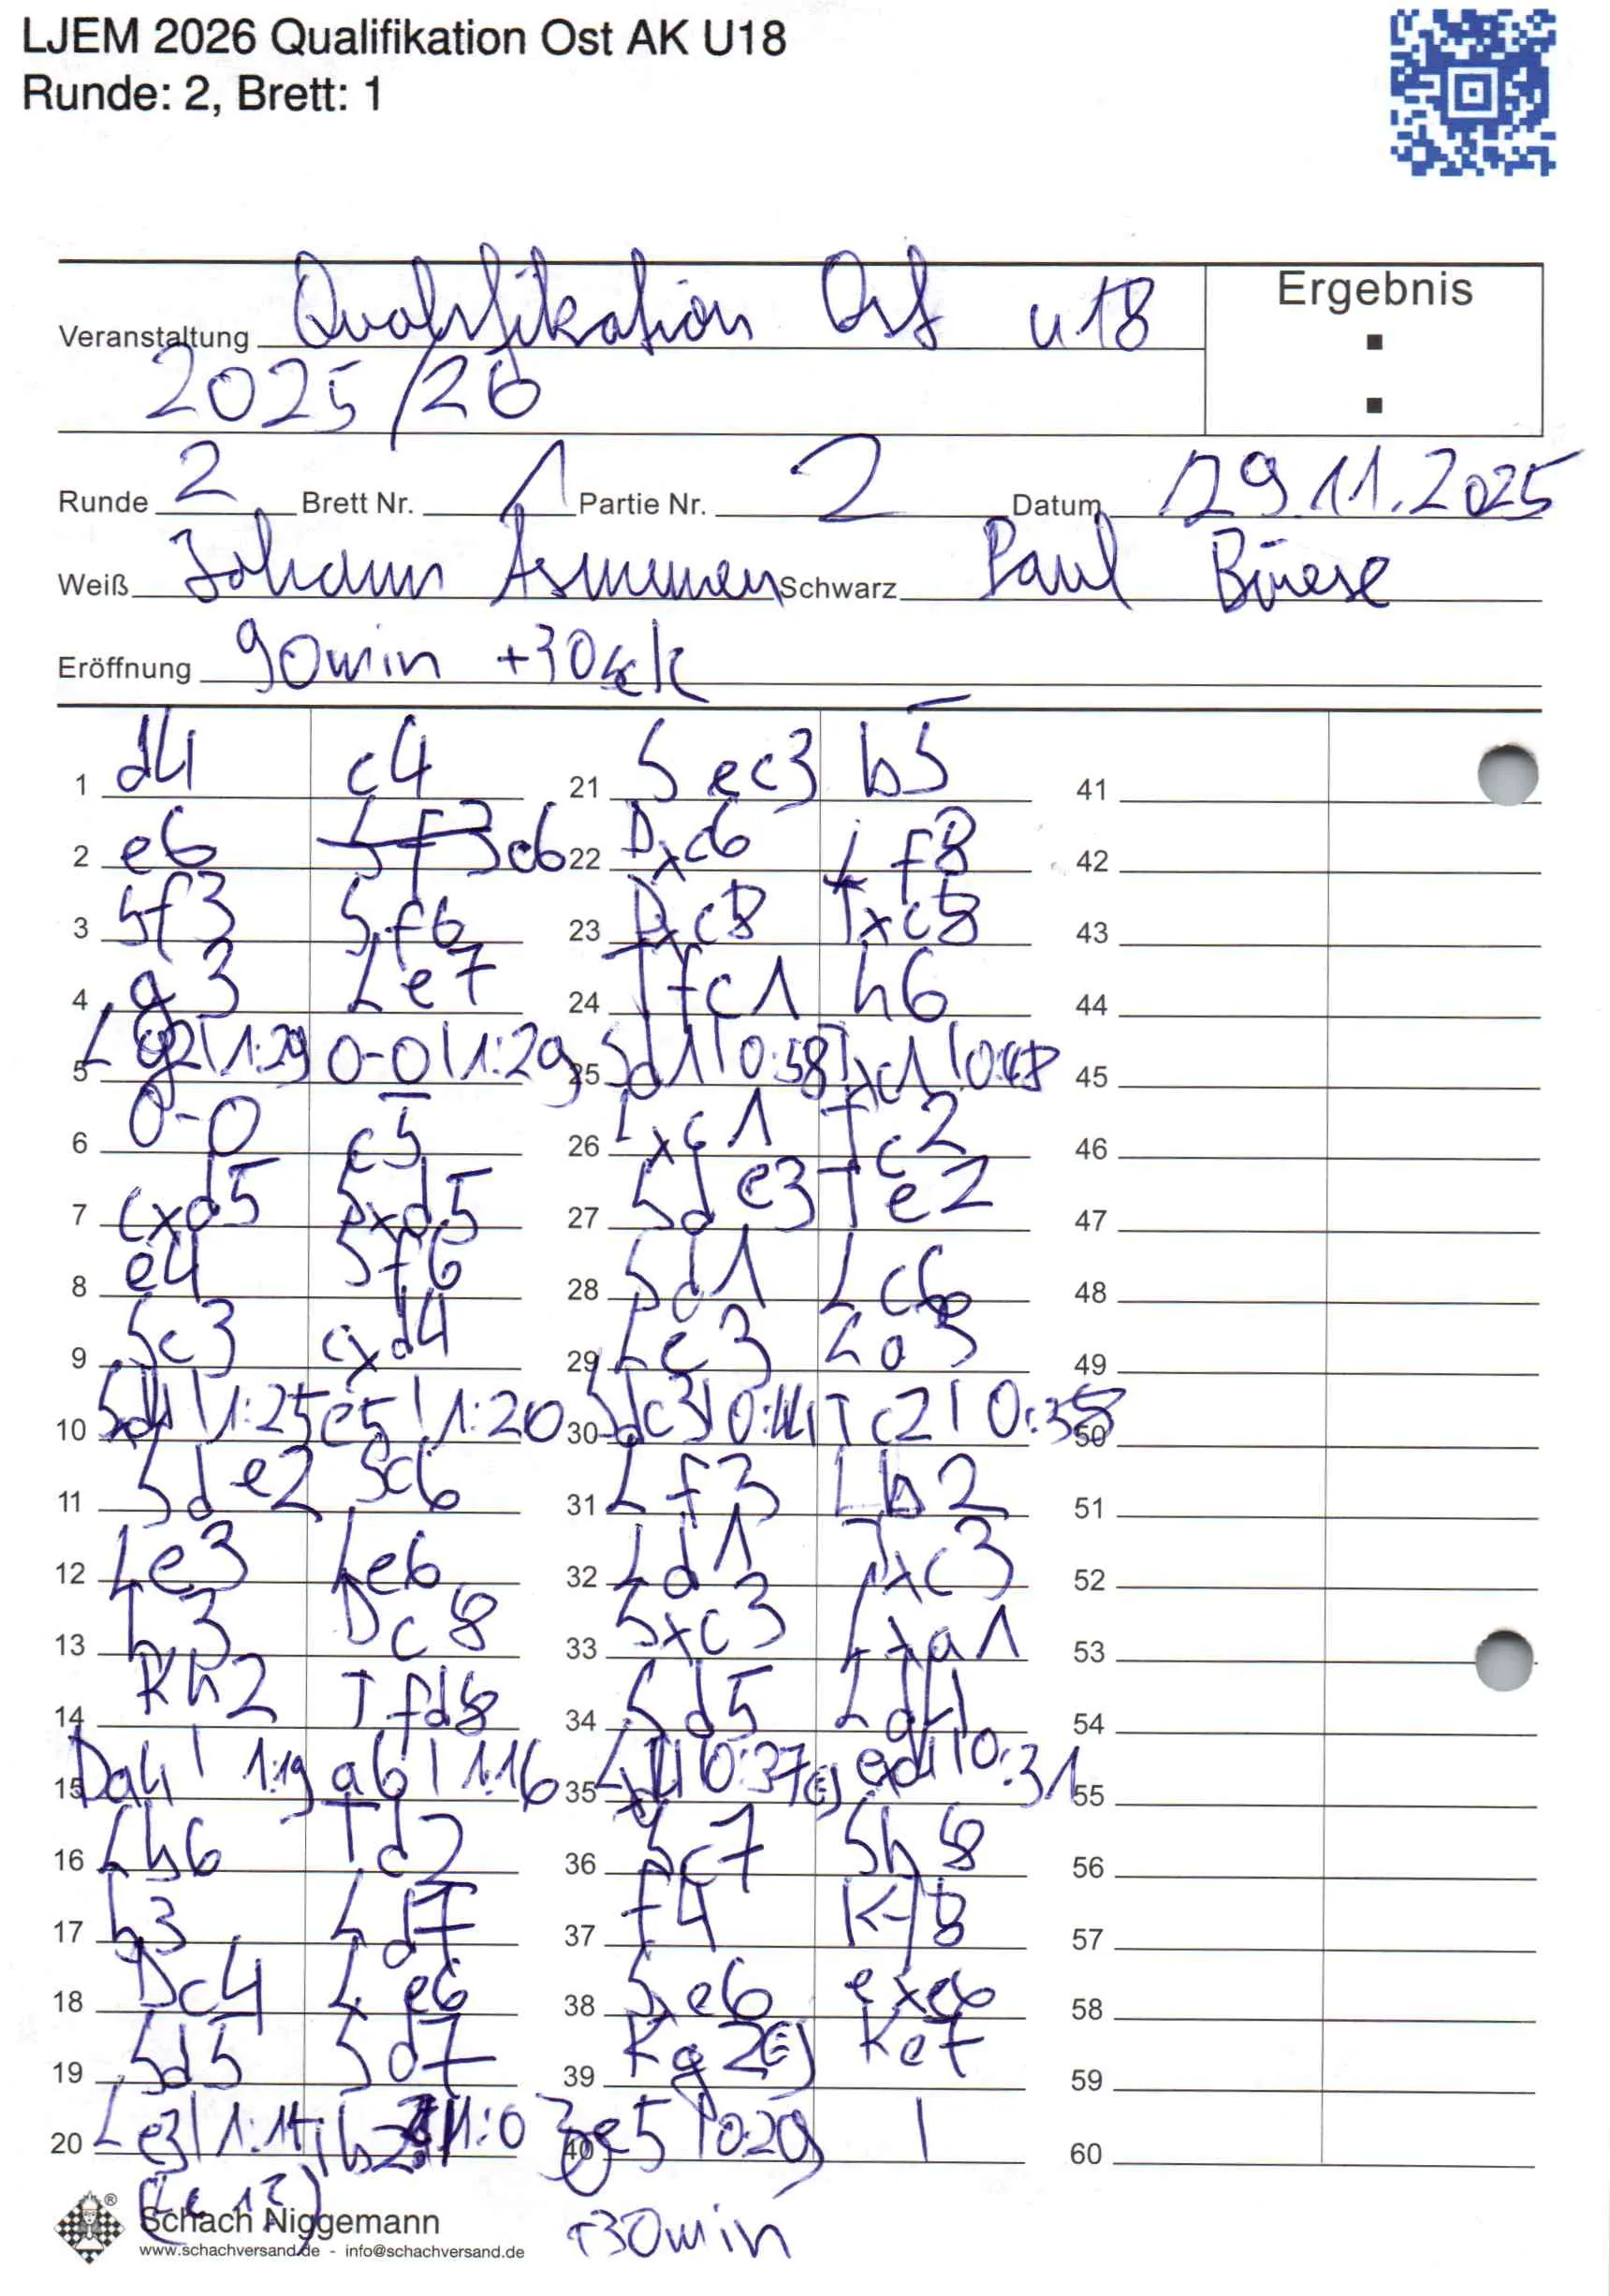 LJEM 2026 Qualifikation Ost AK U18
Runde: 2, Brett: 1
Ergebnis
Veranstaltung Qualifikation Ost u18
2025/26
:
Runde 2 Brett Nr. 1 Partie Nr. 2 Datum 29.11.2025
Weiß Johann Asmussen Schwarz Paul
Eröffnung 90min +30sek
1 d4 c4 21 Sec3 b5 41
2 e6 Sf3 d6 22 Dxc6 Lf8 42
3 Sf3 Sf6 23 Dxc8 Txc8 43
4 g3 Le7 24 Tfc1 h6 44
5 Lg2|1:29 0-0|1:29 25 Sd1|0:58 Txc1|0:48 45
6 0-0 c5 26 Lxc1 Tc2 46
7 cxd5 Sxd5 27 Sde3 Te2 47
8 e4 Sf6 28 Sd1 Lc6 48
9 Sc3 cxd4 29 Lc3 La3 49
10 Sxd4|1:25 e5|1:20 30 Sdc3|0:44 Tc2|0:38 50
11 Sde2 Sc6 31 Lf3 Lb2 51
12 Le3 Le6 32 Ld1 Txc3 52
13 h3 Dc8 33 Sxc3 Lxa1 53
14 Kh2 Tfd8 34 Sd5 Ld4 54
15 Da4|1:19 a6|1:16 35 Lxd4|0:37(=) exd4|0:31 55
16 Lh6 Td7 36 Sc7 Sb8 56
17 b3 Ld7 37 f4 Kf8 57
18 Dc4 Le6 38 Se6 exe6 58
19 Sd5 Sd7 39 Kg2(=) Ke7 59
20 Le3|1:14 40 e5|0:29 | 60
®
Schach Niggemann +30min
www.schachversand.de - info@schachversand.de